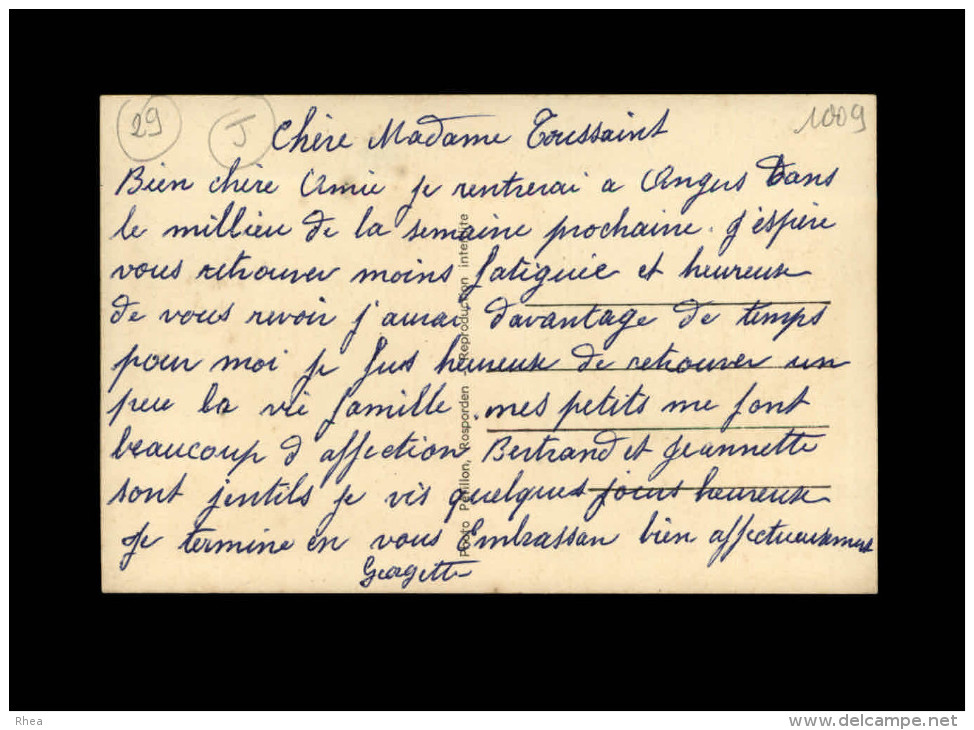 29
J
1009
Chère Madame Toussaint
Bien chère Amie je rentrerai a Angers Dans
le millieu de la semaine prochaine. J'espère
vous retrouver moins fatiguée et heureuse
de vous revoir j'aurai davantage de temps
pour moi je fus heureuse de retrouver un
peu la vie famille. mes petits me font
beaucoup d affection Bertrand et Jeannette
sont jentils je vis quelques jours heureuse
Je termine en vous Embrassan bien affectueusement
Georgette
Photo Périllon, Rosporden - Reproduction interdite
Rhea
www.delcampe.net